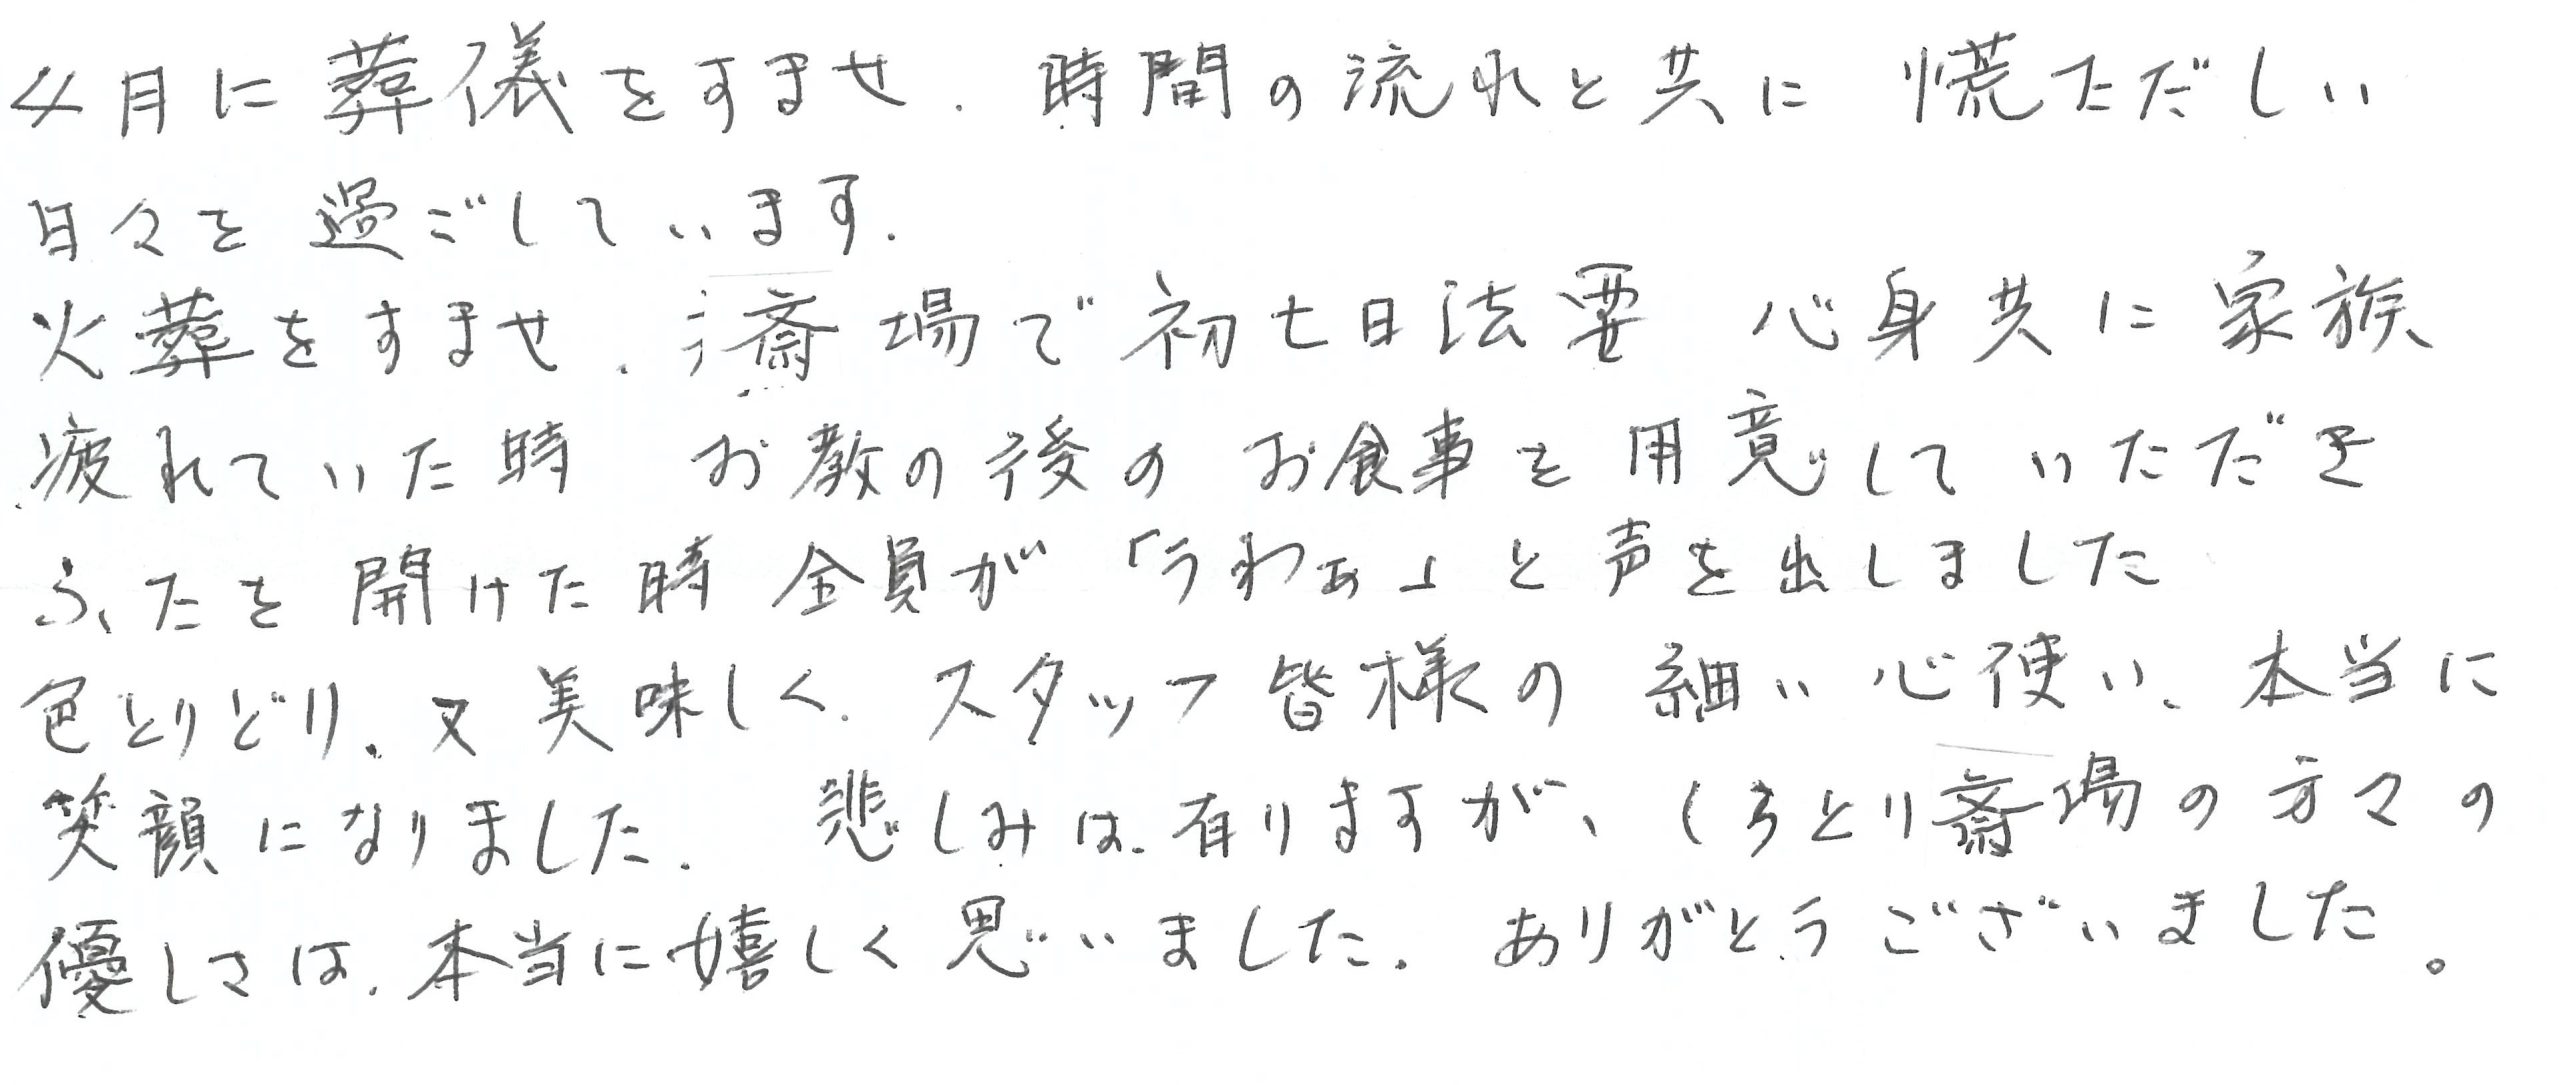 4月に葬儀をすませ、時間の流れと共に 慌ただしい
日々を過ごしています。
火葬をすませ、斎場で初七日法要 心身共に家族
疲れていた時 お教の後の お食事を用意していただき
ふたを開けた時 全員が「うわぁ」と声を出しました
色とりどり、又美味しく、スタッフ皆様の 細い心使い、本当に
笑顔になりました。 悲しみは有りますが、しろとり斎場の方々の
優しさは、本当に嬉しく思いました。ありがとうございました。